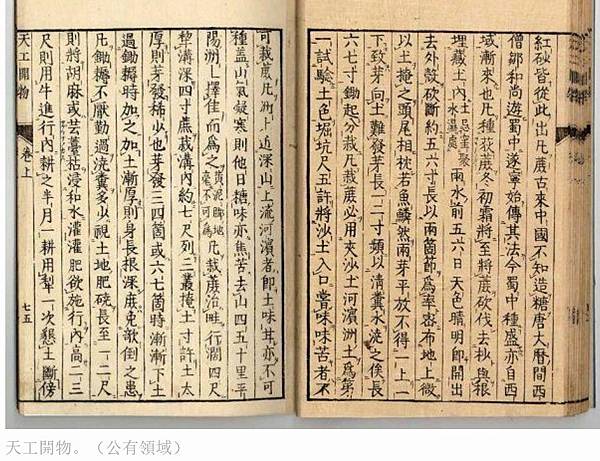 紅砂皆從此出凡蔗古來中國不知造糖唐大曆間西
僧鄒和尚遊蜀中遂寧始傳其法今蜀中種盛亦自西
域漸來也凡種荻蔗冬初霜將至將蔗砍伐去杪與根
埋藏土內土忌窪聚水濕處雨水前五六日天色晴明即開出
去外殼砍斷約五六寸長以兩箇節為率密布地上微
以土掩之頭尾相枕若魚鱗然兩芽平放不得一上一
下致芽向土難發芽長一二寸頻以清糞水澆之俟長
六七寸鋤起分栽凡栽蔗必用夾沙土河濱洲土為第
一試驗土色堀坑尺五許將沙土入口嘗味味苦者不
可栽蔗凡洲土近深山上流河濱者即土味甘亦不可
種蓋山氣凝寒則他日糖味亦焦苦去山四五十里平
陽洲土擇佳而為之黃泥腳地毫不可為凡栽蔗治畦行濶四尺
犁溝深四寸蔗栽溝內約七尺列三叢掩土寸許土太
厚則芽發稀少也芽發三四箇或六七箇時漸漸下土
遇鋤耨時加之加土漸厚則身長根深庶免欹倒之患
凡鋤耨不厭勤過澆糞多少視土地肥磽長至一二尺
則將胡麻或芸薹枯浸和水灌灌肥欲施行內高二三
尺則用牛進行內耕之半月一耕用犁一次懇土斷傍
天工開物
卷上
七五
天工開物。（公有領域）